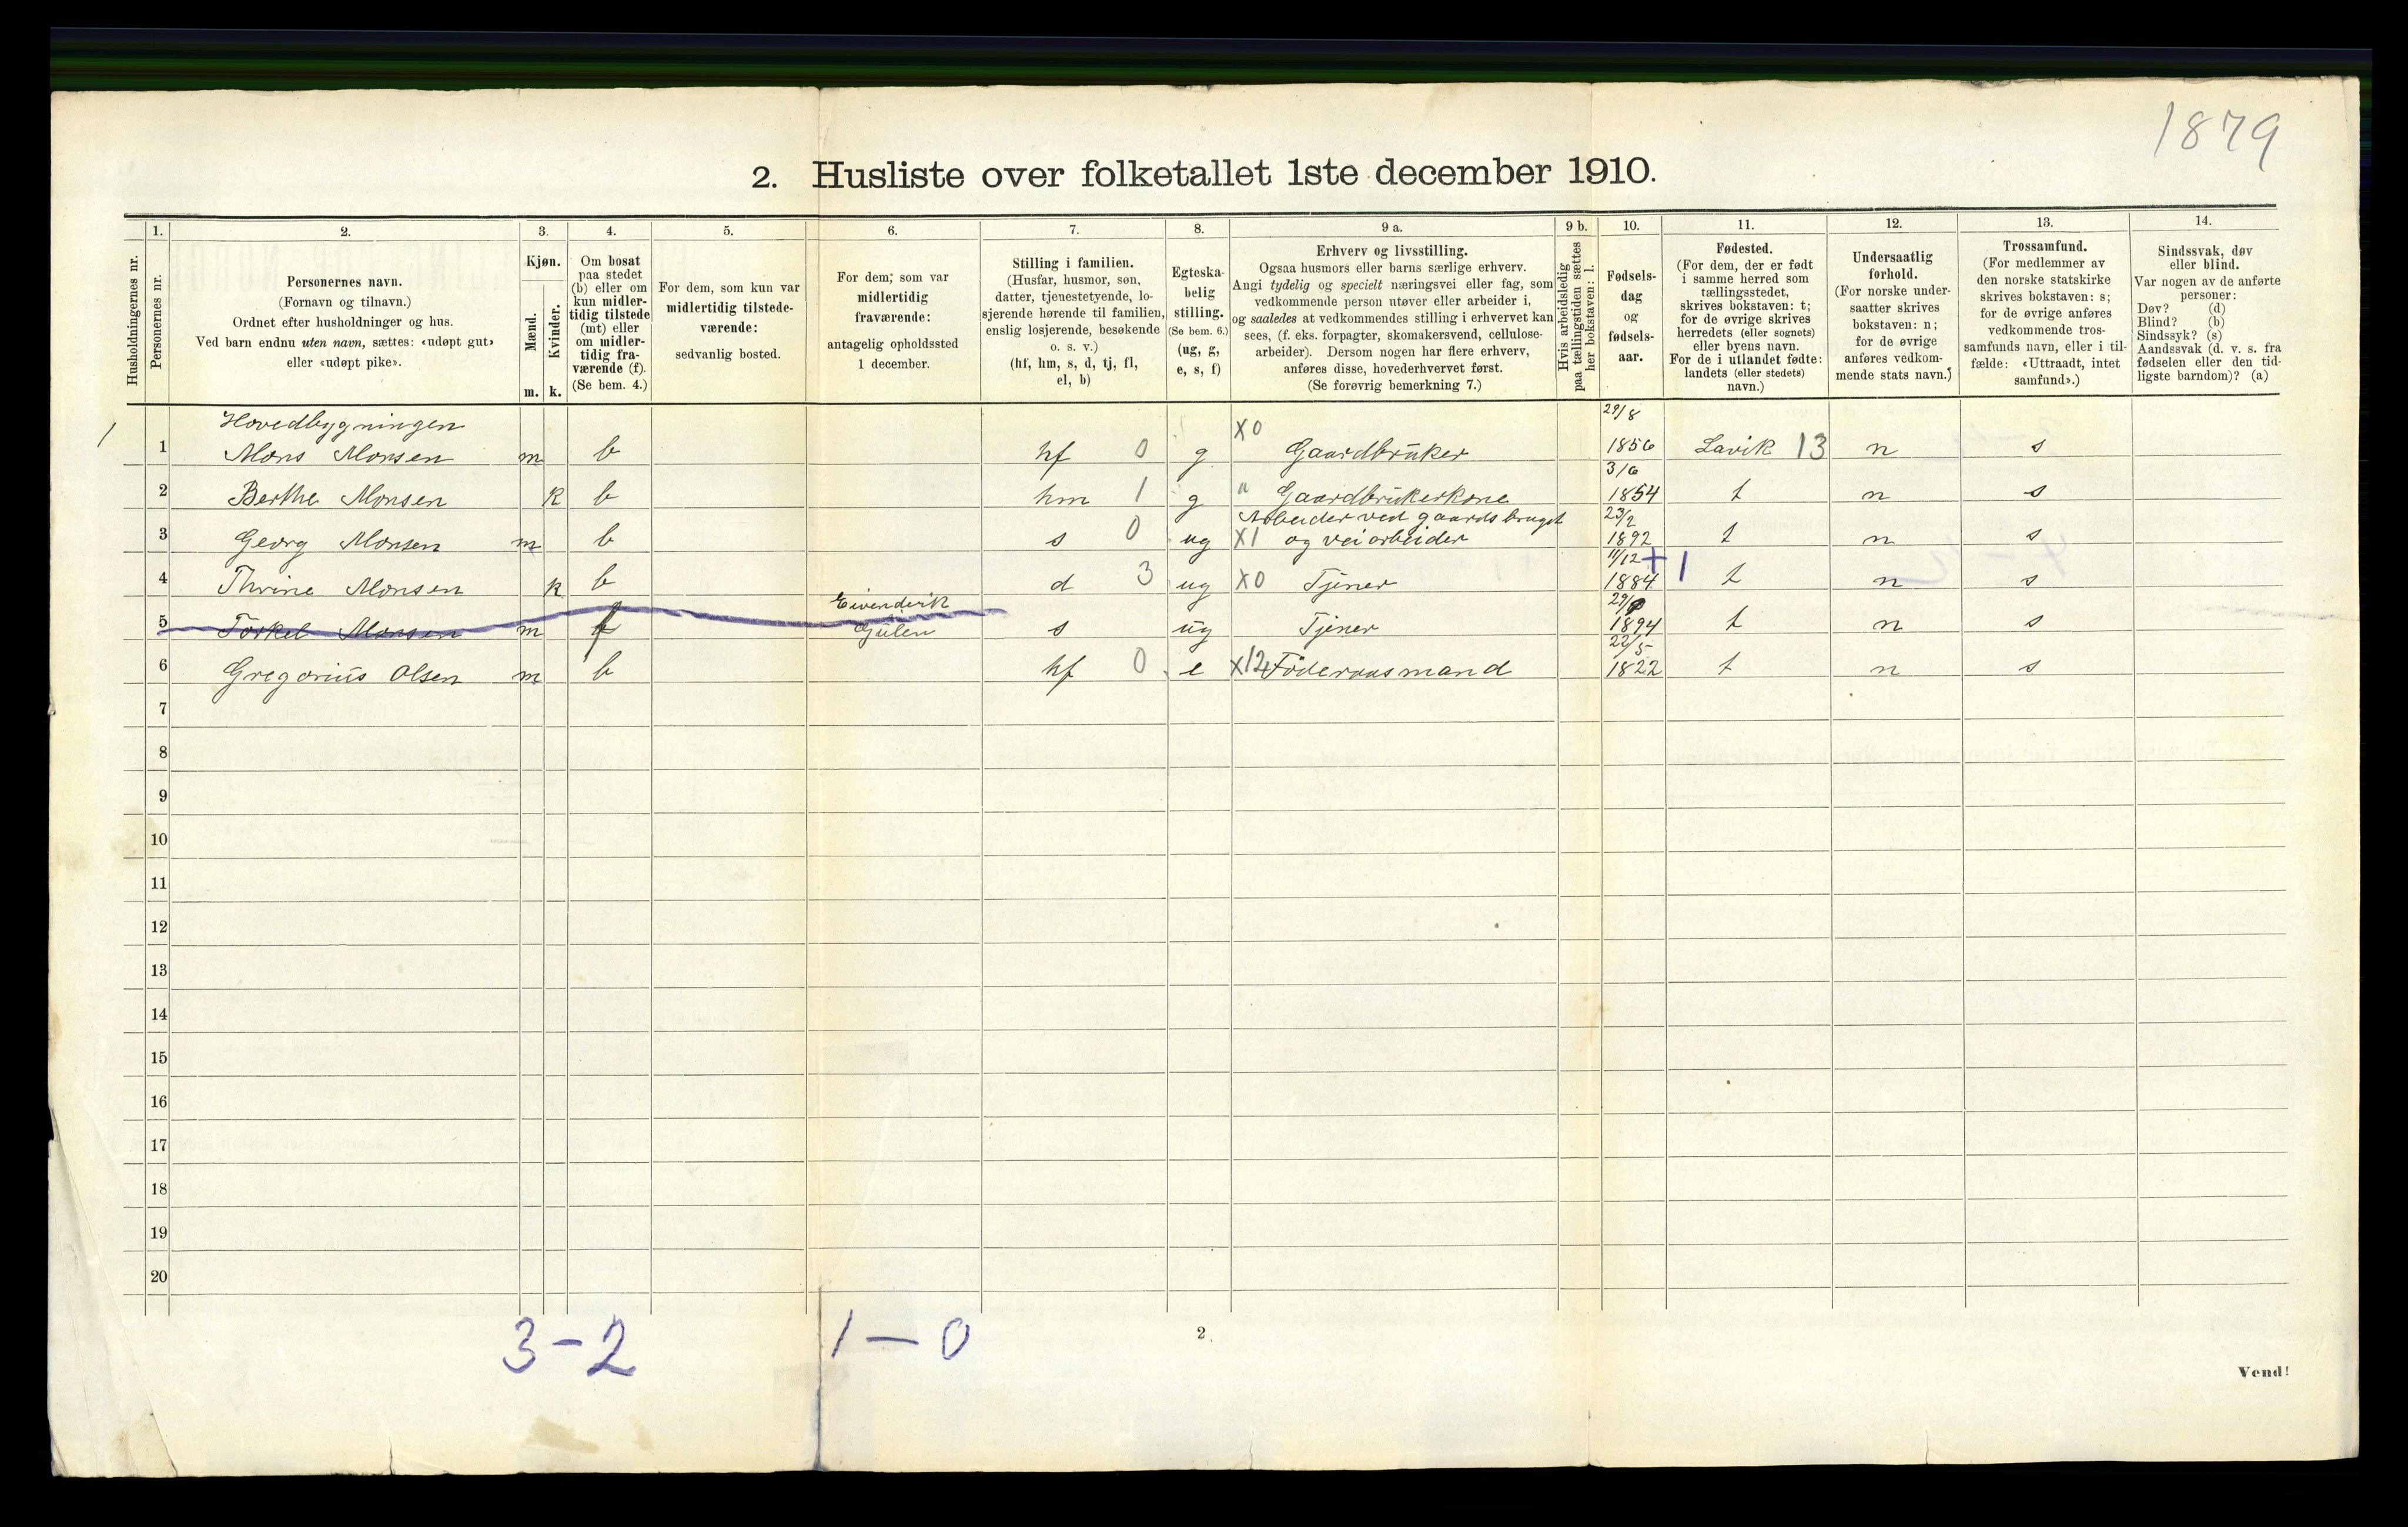 1879
2. Husliste over folketallet 1ste december 1910.
Husholdningernes nr.
1.
Personernes nr.
2.
Personernes navn.
(Fornavn og tilnavn.)
Ordnet efter husholdninger og hus.
Ved barn endnu uten navn, sættes: «udøpt gut»
eller «udøpt pike».
3.
Kjøn.
Mænd.
Kvinder.
m. k.
4.
Om bosat
paa stedet
(b) eller om
kun midler-
tidig tilstede
(mt) eller
om midler-
tidig fra-
værende (f).
(Se bem. 4.)
5.
For dem, som kun var
midlertidig tilstede-
værende:
sedvanlig bosted.
6.
For dem, som var
midlertidig
fraværende:
antagelig opholdssted
1 december.
7.
Stilling i familien.
(Husfar, husmor, søn,
datter, tjenestetyende, lo-
sjerende hørende til familien,
enslig losjerende, besøkende
o. s. v.)
(hf, hm, s, d, tj, fl,
el, b)
8.
Egteska-
belig
stilling.
(Se bem. 6.)
(ug, g,
e, s, f)
9 a.
Erhverv og livsstilling.
Ogsaa husmors eller barns særlige erhverv.
Angi tydelig og specielt næringsvei eller fag, som
vedkommende person utøver eller arbeider i,
og saaledes at vedkommendes stilling i erhvervet kan
sees, (f. eks. forpagter, skomakersvend, cellulose-
arbeider). Dersom nogen har flere erhverv,
anføres disse, hovederhvervet først.
(Se forøvrig bemerkning 7.)
9 b.
Hvis arbeidsledig
paa tællingstiden sættes
her bokstaven: l.
10.
Fødsels-
dag
og
fødsels-
aar.
11.
Fødested.
(For dem, der er født
i samme herred som
tællingsstedet,
skrives bokstaven: t;
for de øvrige skrives
herredets (eller sognets)
eller byens navn.
For de i utlandet fødte:
landets (eller stedets)
navn.)
12.
Undersaatlig
forhold.
(For norske under-
saatter skrives
bokstaven: n;
for de øvrige
anføres vedkom-
mende stats navn.)
13.
Trossamfund.
(For medlemmer av
den norske statskirke
skrives bokstaven: s;
for de øvrige anføres
vedkommende tros-
samfunds navn, eller i til-
fælde: «Uttraadt, intet
samfund».)
14.
Sindssvak, døv
eller blind.
Var nogen av de anførte
personer:
Døv? (d)
Blind? (b)
Sindssyk? (s)
Aandssvak (d. v. s. fra
fødselen eller den tid-
ligste barndom)? (a)
Hovedbygningen X0 29/8
1 1 Mons Monsen m b hf 0 g Gaardbruker 1856 Lavik 13 n s
3/6
2 Berthe Monsen k b hm 1 g " Gaardbrukerkone 1854 t n s
Arbeider ved gaardsbruget 23/2
3 Georg Monsen m b s 0 ug X1 og veiarbeider 1892 t n s
11/12 + 1
4 Thrine Monsen k b d 3 ug X0 Tjener 1884 t n s
Eivendvik
5 Torkel Monsen m f Gulen s ug Tjener 1894 t n s
22/5
6 Gregorius Olsen m b hf 0 e X12 Föderaasmand 1822 t n s
7
8
9
10
11
12
13
14
15
16
17
18
19
20
3-2 1-0
2
Vend!